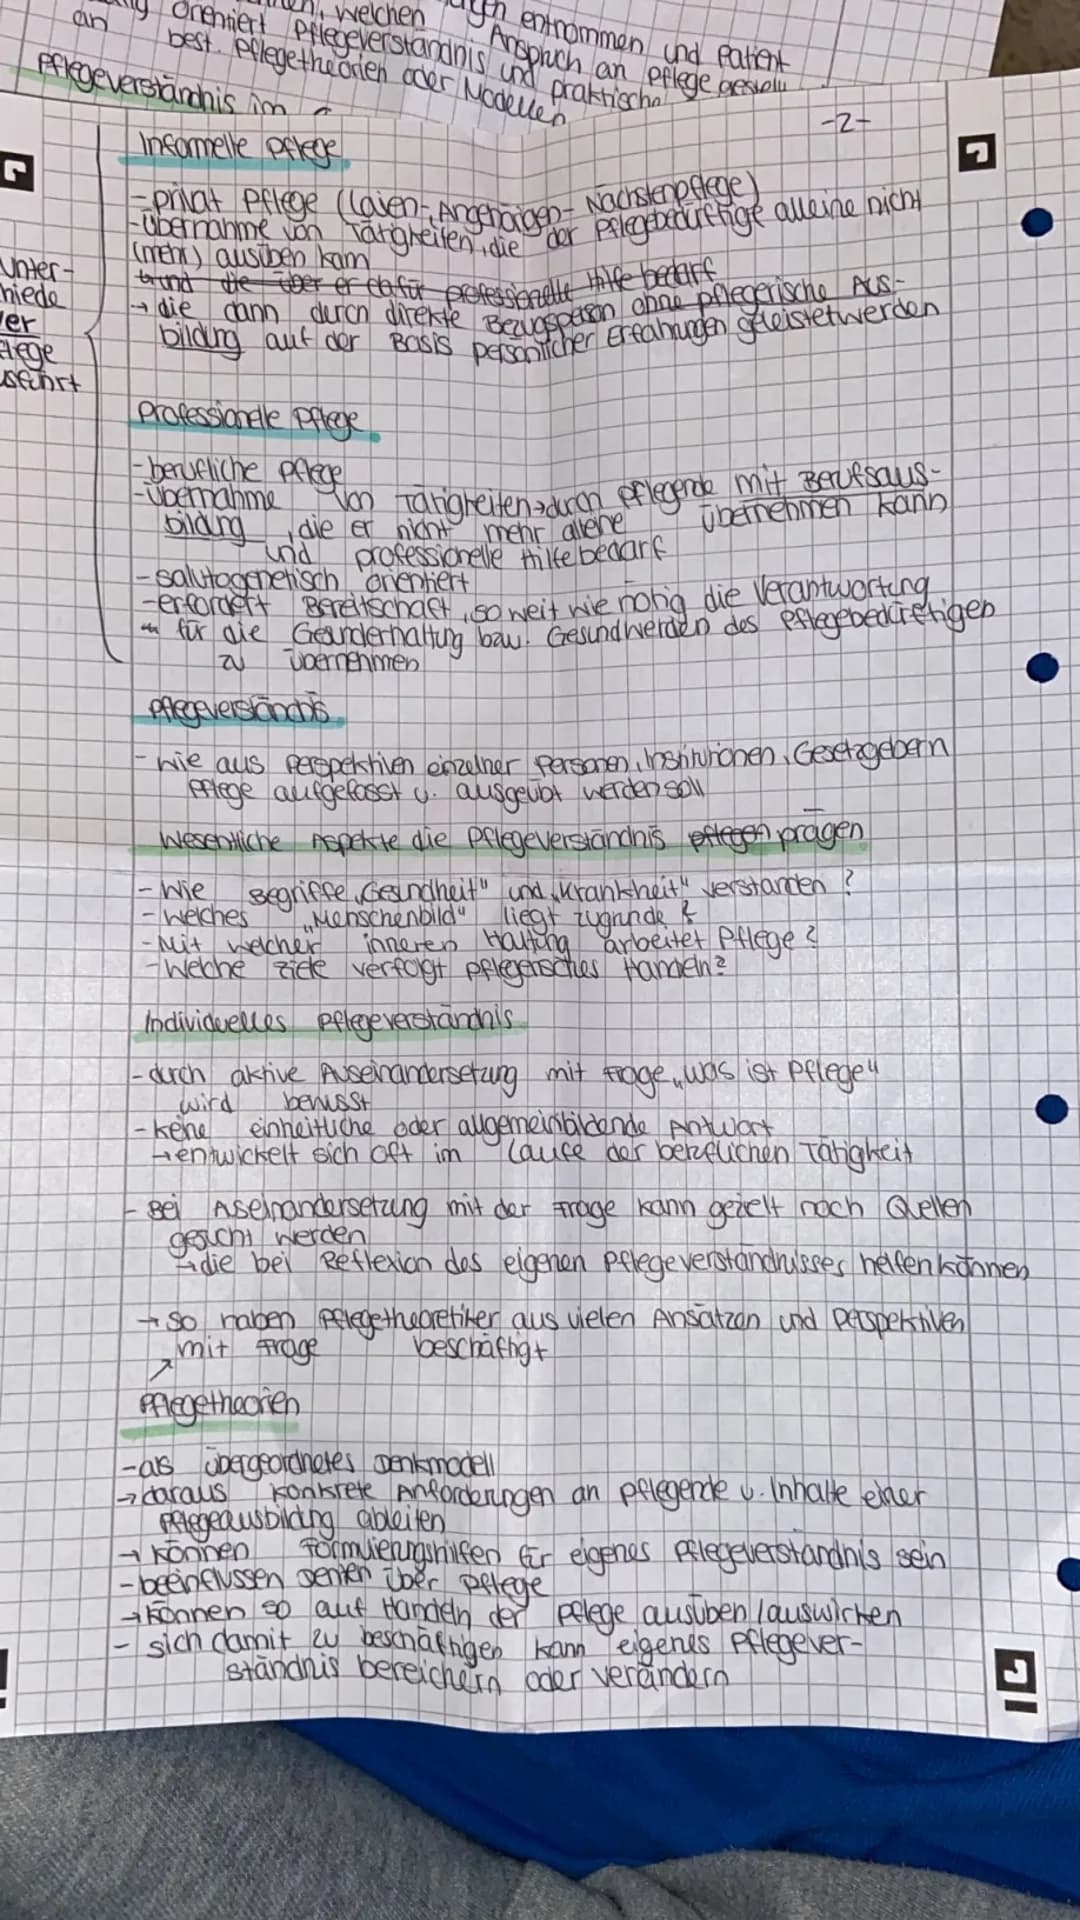 orientiert Pflegeverständnis und praktische
welchen Anspruch an Pflege
entnommen und Patient
an best. Pflegetheorien oder Modellen
Pflegeverständnis im
-2-
Unter-
hiede
er
flege
sführt
Informelle Pflege
- privat Pflege (Laien-, Angehörigen- Nächstenpflege)
- Übernahme von Tätigkeiten, die der Pflegebedürftige alleine nicht
(mehr) ausüben kam
und die über er dafür professionelle Hilfe bedarf
→ die dann durch direkte Bezugsperson ohne pflegerische Aus-
bildung auf der Basis persönlicher Erfahrungen geleistet werden
Professionelle Pflege
- berufliche Pflege
- Übernahme von Tätigkeiten → durch Pflegende mit Berufsaus-
bildung, die er nicht mehr alleine übernehmen kann
und professionelle Hilfe bedarf
- salutogenetisch orientiert
- erfordert Bereitschaft, so weit wie nötig die Verantwortung
für die Gesunderhaltung bzw. Gesundwerden des Pflegebedürftigen
zu übernehmen
Pflegeverständnis
- wie aus Perspektiven einzelner Personen, Institutionen, Gesetzgebern
Pflege aufgefasst u. ausgeübt werden soll
Wesentliche Aspekte die Pflegeverständnis pflegen prägen
- Wie Begriffe „Gesundheit" und „Krankheit" verstanden?
- Welches „Menschenbild" liegt zugrunde?
- Mit welcher inneren Haltung arbeitet Pflege?
- Welche Ziele verfolgt pflegerisches Handeln?
Individuelles Pflegeverständnis
- durch aktive Auseinandersetzung mit Frage „was ist Pflege"
wird bewusst
- keine einheitliche oder allgemeinbildende Antwort
→ entwickelt sich oft im Laufe der beruflichen Tätigkeit
- Bei Aseinandersetzung mit der Frage kann gezielt nach Quellen
gesucht werden
→ die bei Reflexion des eigenen Pflegeverständnisses helfen können
→ So haben Pflegetheoretiker aus vielen Ansätzen und Perspektiven
mit Frage beschäftigt
Pflegetheorien
- als übergeordnetes Denkmodell
→ daraus konkrete Anforderungen an Pflegende u. Inhalte einer
Pflegeausbildung ableiten
→ können Formulierungshilfen für eigenes Pflegeverständnis sein
- beeinflussen Denken über Pflege
→ können so auf Handeln der Pflege ausüben / auswirken
- sich damit zu beschäftigen kann eigenes Pflegever-
ständnis bereichern oder verändern